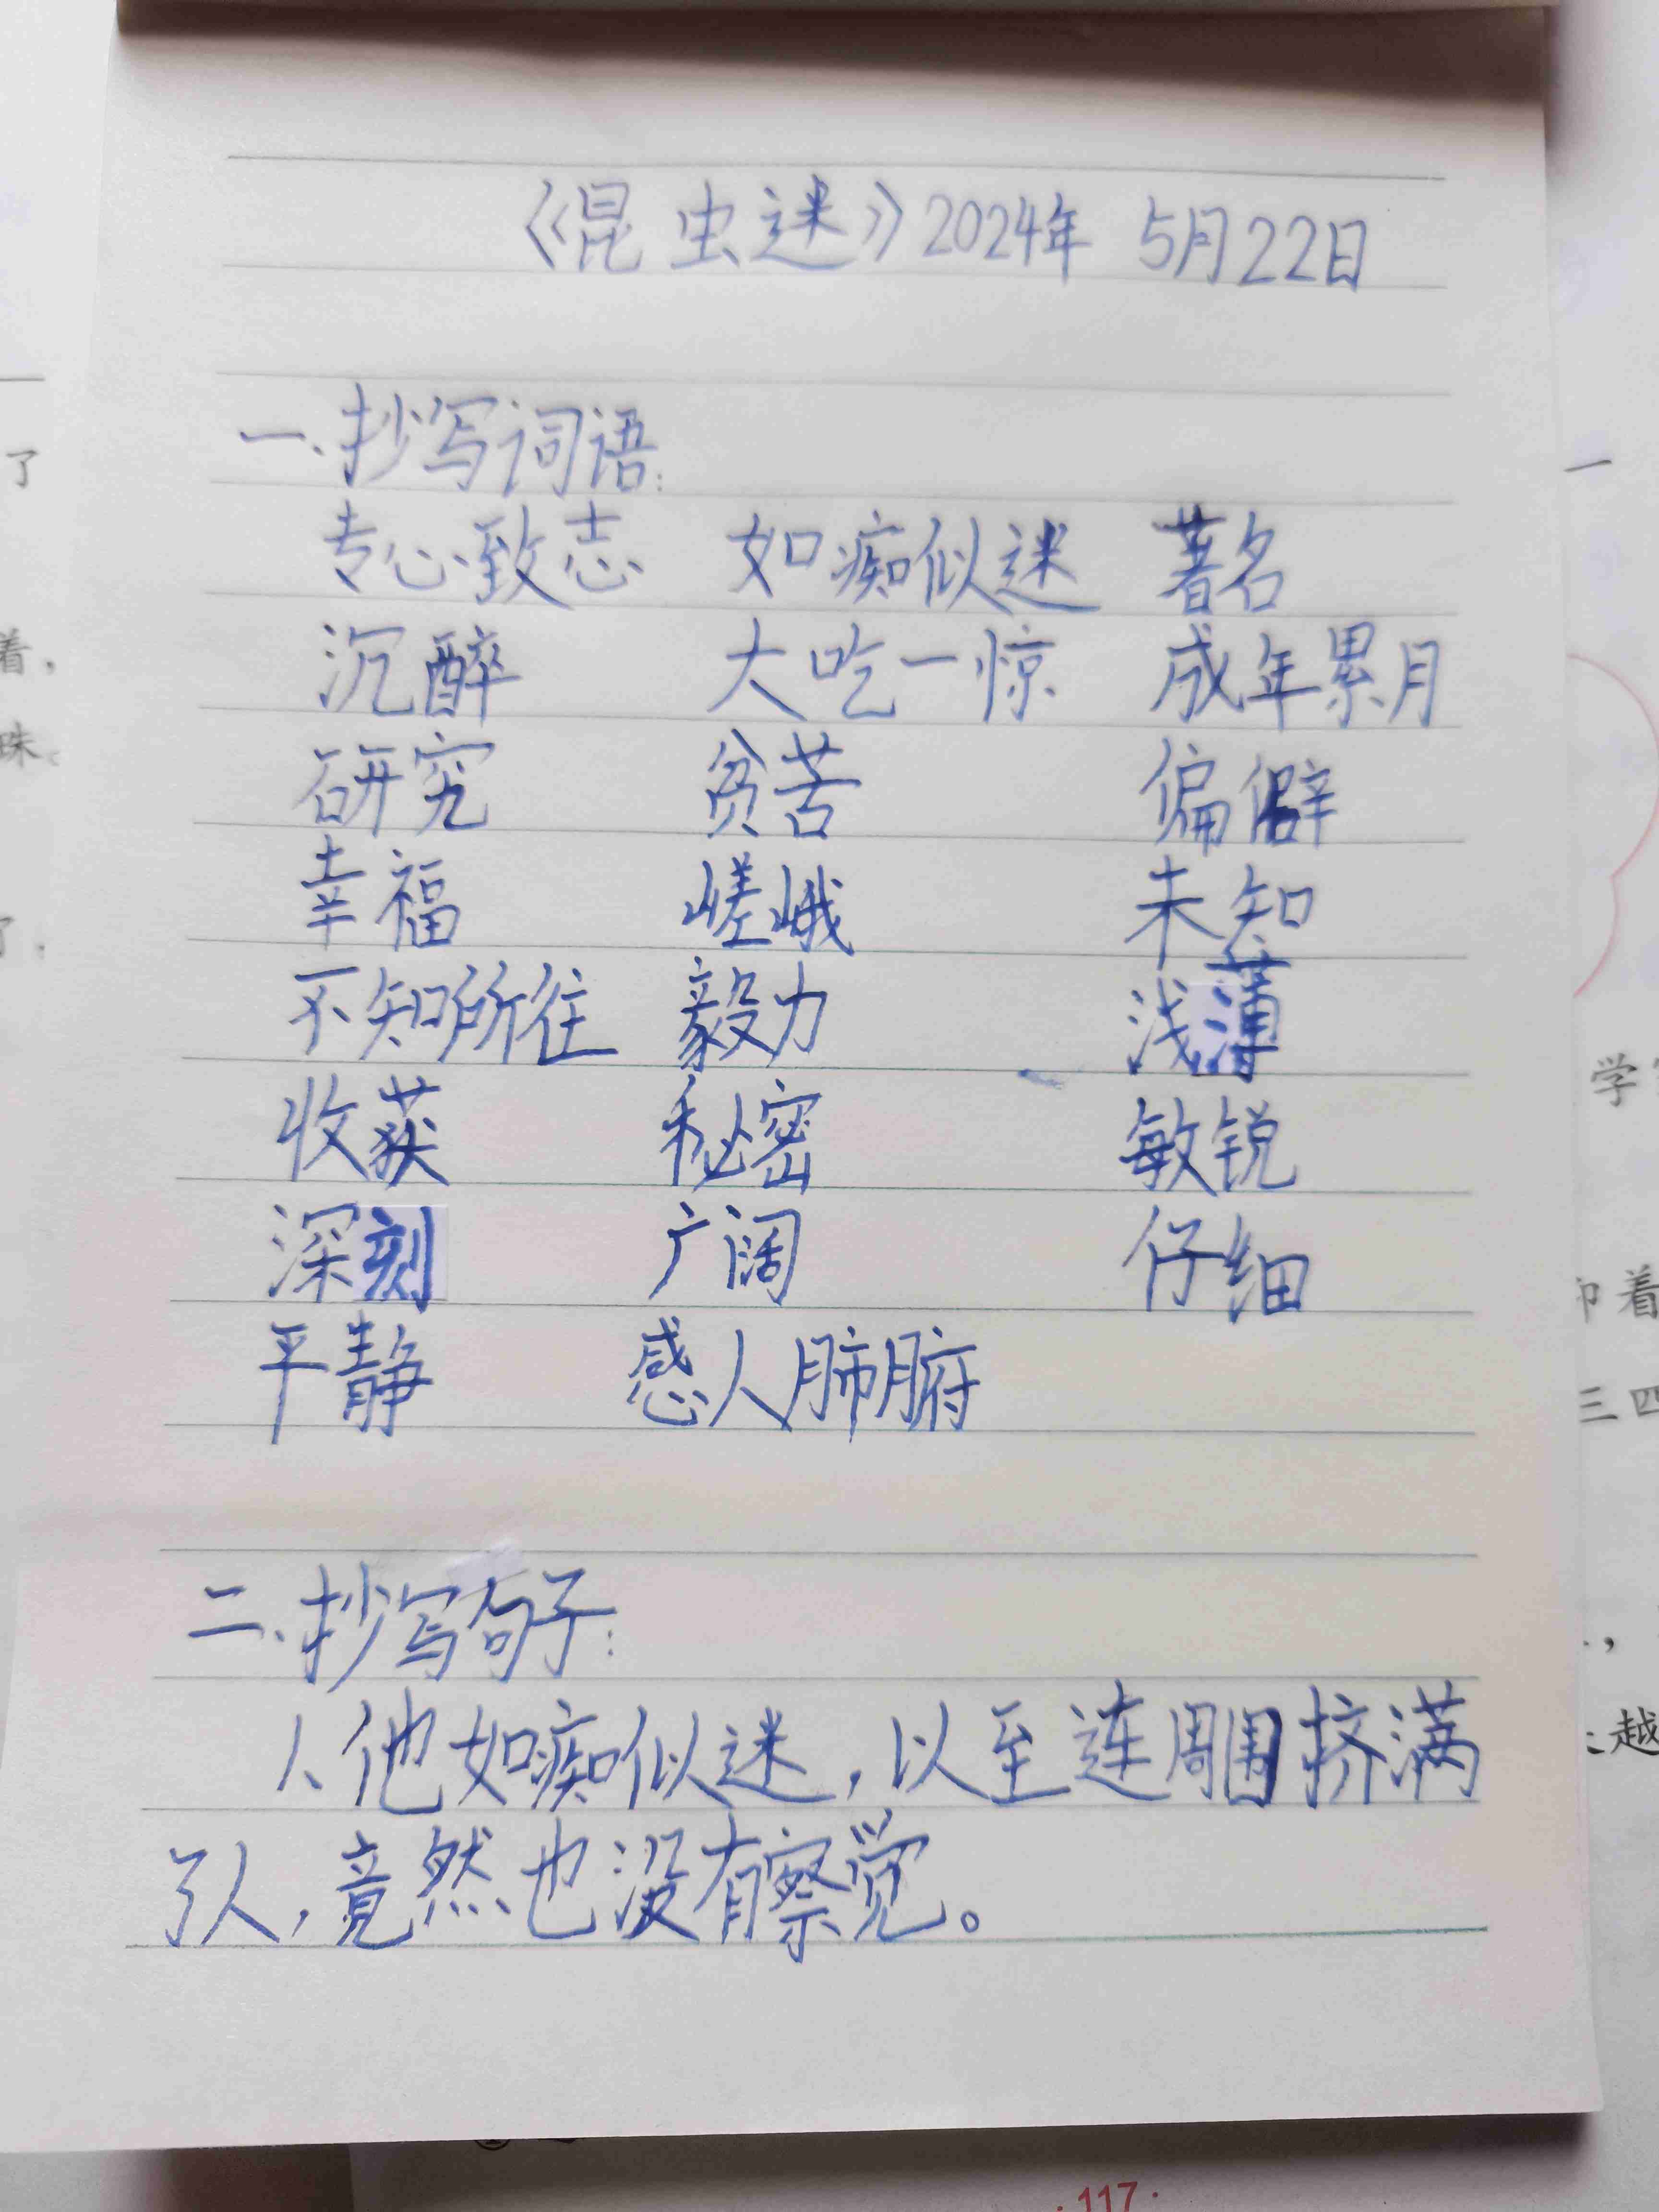 《昆虫迷》2024年 5月22日
一、抄写词语:
专心致志 如痴似迷 著名
沉醉 大吃一惊 成年累月
研究 贫苦 偏僻
幸福 嵯峨 未知
不知所往 毅力 浅薄
收获 秘密 敏锐
深刻 广阔 仔细
平静 感人肺腑
二、抄写句子:
1、他如痴似迷,以至连周围挤满
了人,竟然也没有察觉。
了
着,
珠。
了.
一
学
印着
三四
越
·117·